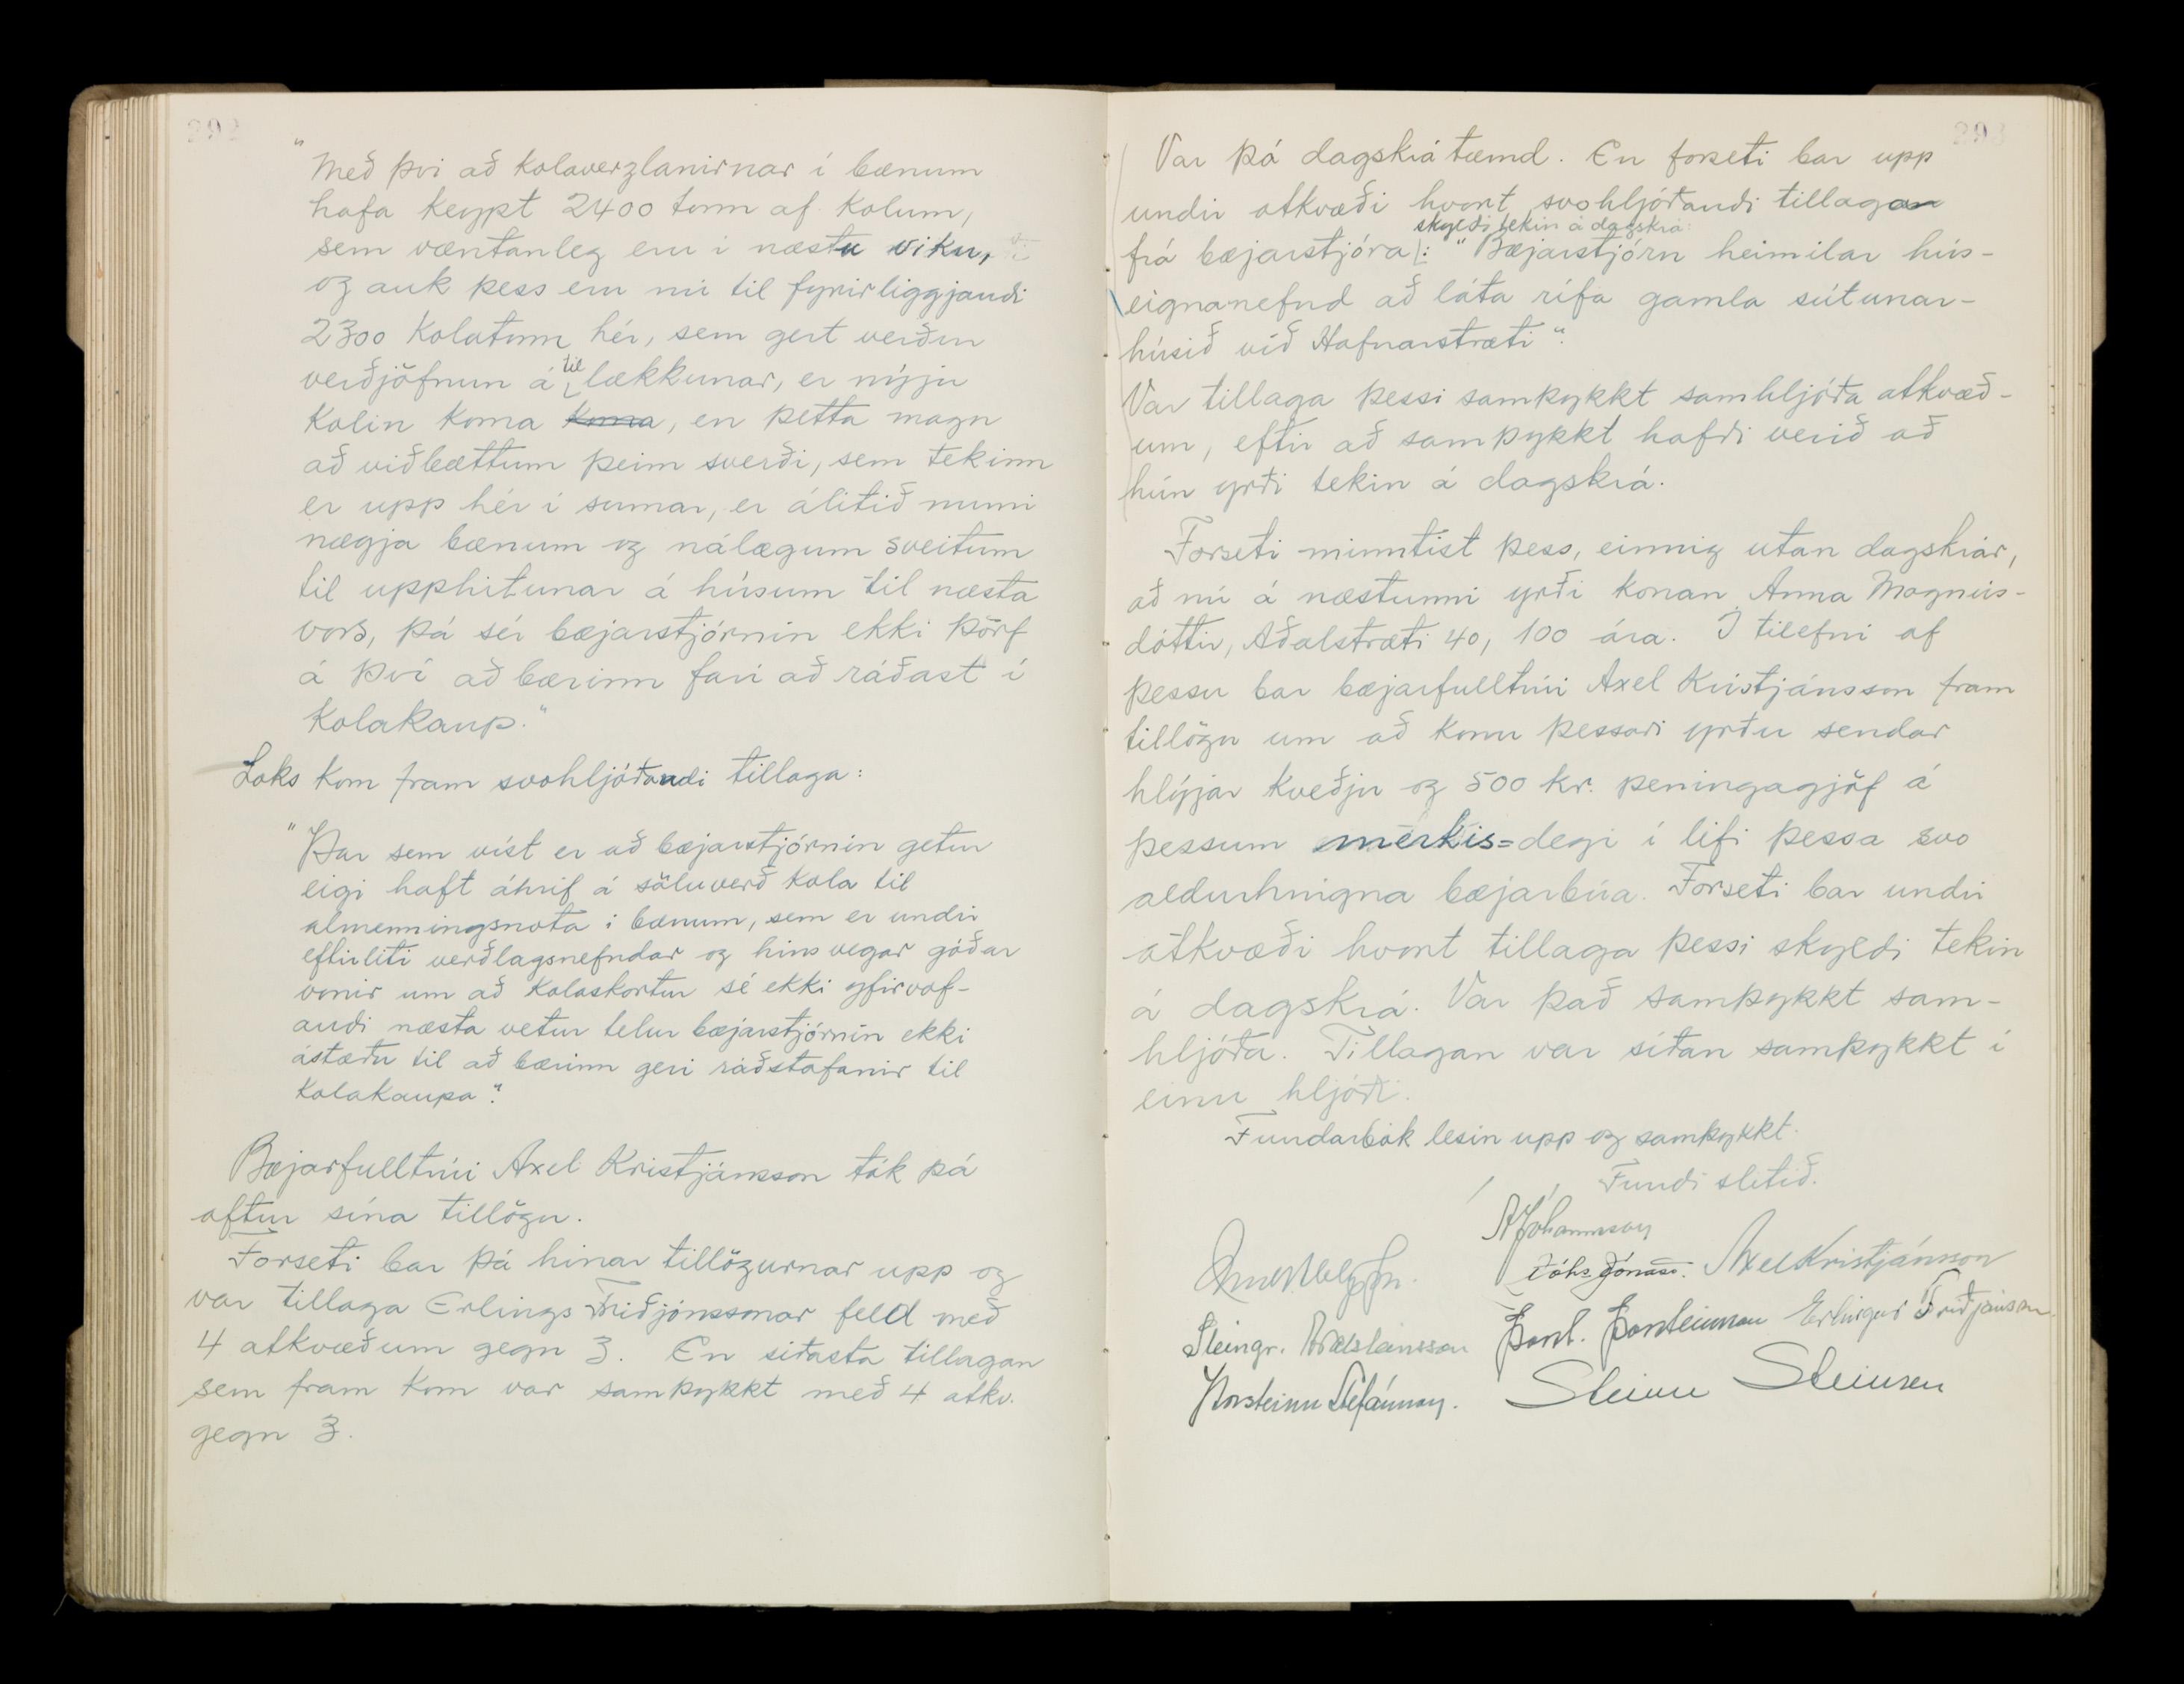 292
"Með því að kolaverzlanirnar í bænum
hafa keypt 2400 tonn af kolum,
sem væntanleg eru í næstu viku,
og auk þess eru nú til fyrirliggjandi
2300 kolatonn hér, sem gert verður
verðjöfnun á til lækkunar, er nýju
kolin koma koma, en þetta magn
að viðbættum þeim sverði, sem tekinn
er upp hér í sumar, er álitið muni
nægja bænum og nálægum sveitum
til upphitunar á húsum til næsta
vors, þá sér bæjarstjórnin ekki þörf
á því að bærinn fari að ráðast í
kolakaup."
Loks kom fram svohljóðandi tillaga:
"Þar sem víst er að bæjarstjórnin getur
eigi haft áhrif á söluverð kola til
almenningsnota í bænum, sem er undir
eftirliti verðlagsnefndar og hins vegar góðar
vonir um að kolaskortur sé ekki yfirvof-
andi næsta vetur telur bæjarstjórnin ekki
ástæðu til að bærinn geri ráðstafanir til
kolakaupa".
Bæjarfulltrúi Axel Kristjánsson tók þá
aftur sína tillögu.
Forseti bar þá hinar tillögurnar upp og
var tillaga Erlings Friðjónssonar feld með
4 atkvæðum gegn 3. En síðasta tillagan
sem fram kom var samþykkt með 4 atkv.
gegn 3.
293
Var þá dagskrá tæmd. En forseti bar upp
undir atkvæði hvort svohljóðandi tillaga
skyldi tekin á dagskrá:
frá bæjarstjóra: "Bæjarstjórn heimilar hús-
eignanefnd að láta rífa gamla sútunar-
húsið við Hafnarstræti".
Var tillaga þessi samþykkt samhljóða atkvæð-
um, eftir að samþykkt hafði verið að
hún yrði tekin á dagskrá.
Forseti minntist þess, einnig utan dagskrár,
að nú á næstunni yrði konan Anna Magnús-
dóttir, Aðalstræti 40, 100 ára. Í tilefni af
þessu bar bæjarfulltrúi Axel Kristjánsson fram
tillögu um að konu þessari yrðu sendar
hlýjar kveðjur og 500 kr. peningagjöf á
þessum merkis=degi í lífi þessa svo
aldurhnigna bæjarbúa. Forseti bar undir
atkvæði hvort tillaga þessi skyldi tekin
á dagskrá. Var það samþykkt sam-
hljóða. Tillagan var síðan samþykkt í
einu hljóði.
Fundarbók lesin upp og samþykkt.
Fundi slitið.
A Jóhannsson
Jóhs. Jónass. Axel Kristjánsson
Steingr. Aðalsteinsson Þorst. Þorsteinsson Erlingur Friðjónsson
Þorsteinn Stefánsson. Steinn Steinsen